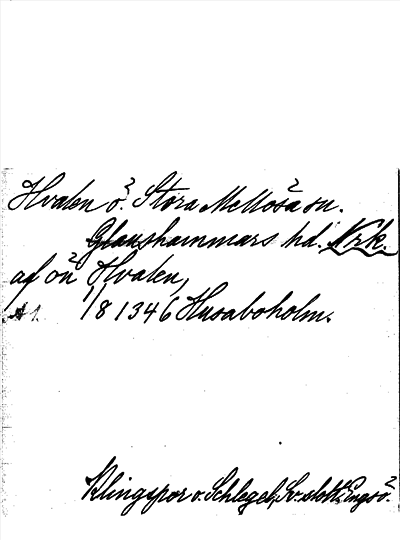 Hvalen ö. Stora Mellösa sn.
Glanshammars hd. Nrk.
af ön Hvalen,
A 1. 1/8 1346 Husaboholm.
Klingspor o. Schlegel, Sv. slott. Engsö.